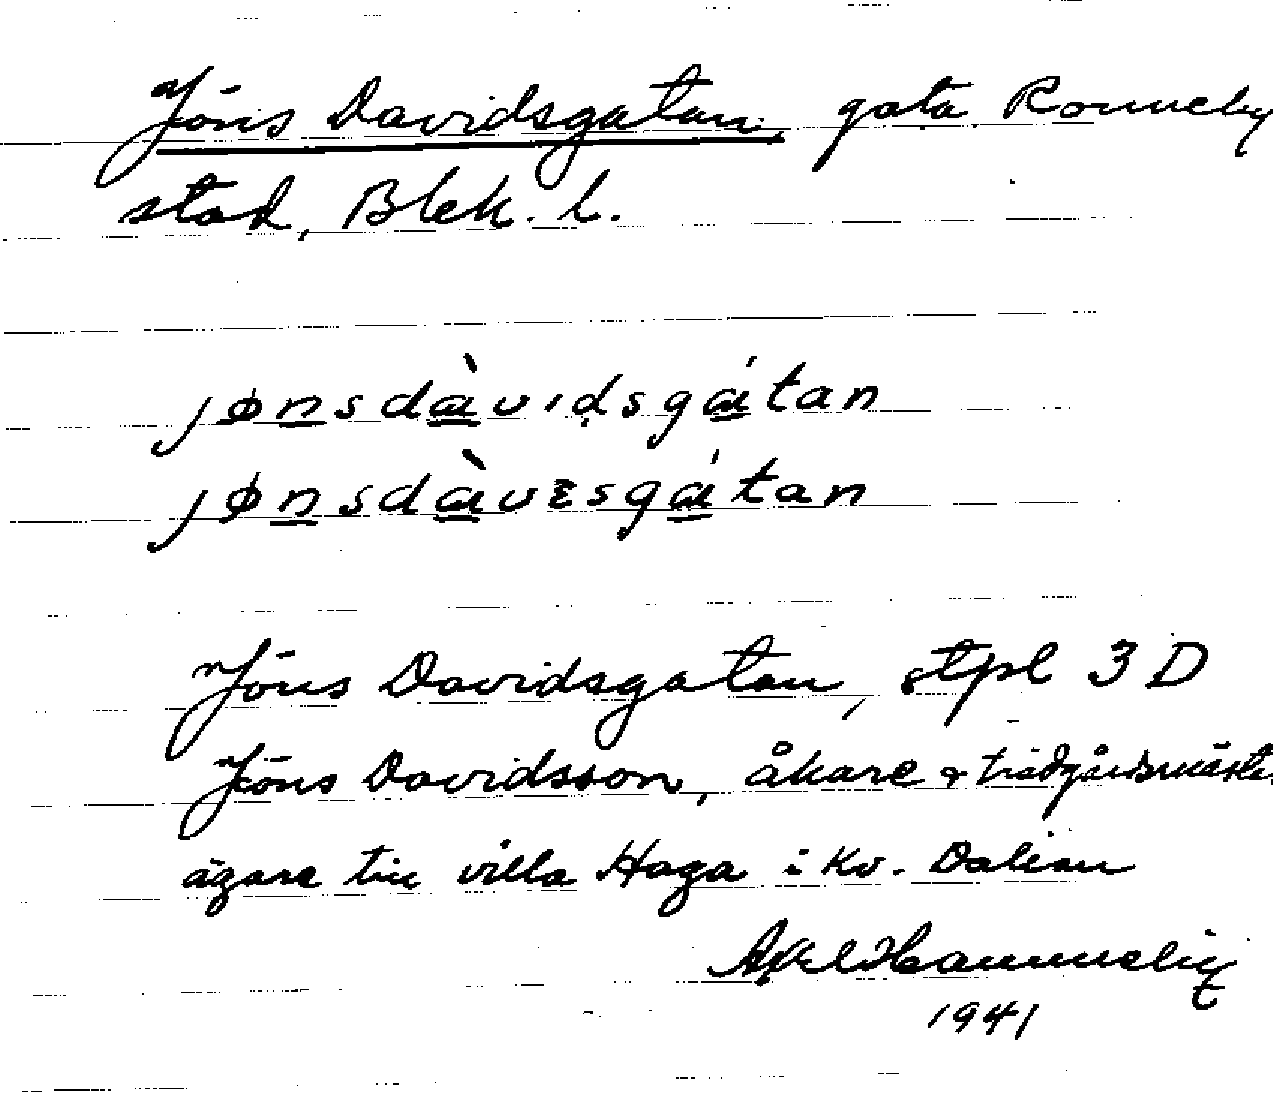 Jöns Davidsgatan, gata Ronneby
stad, Blek. l.
jønsdàvidsgátan
jønsdàvɛsgátan
Jöns Davidsgatan, stpl 3 D
Jöns Davidsson, åkare & trädgårdsmäster
ägare till villa Haga i kv. Dalian
Axel
1941